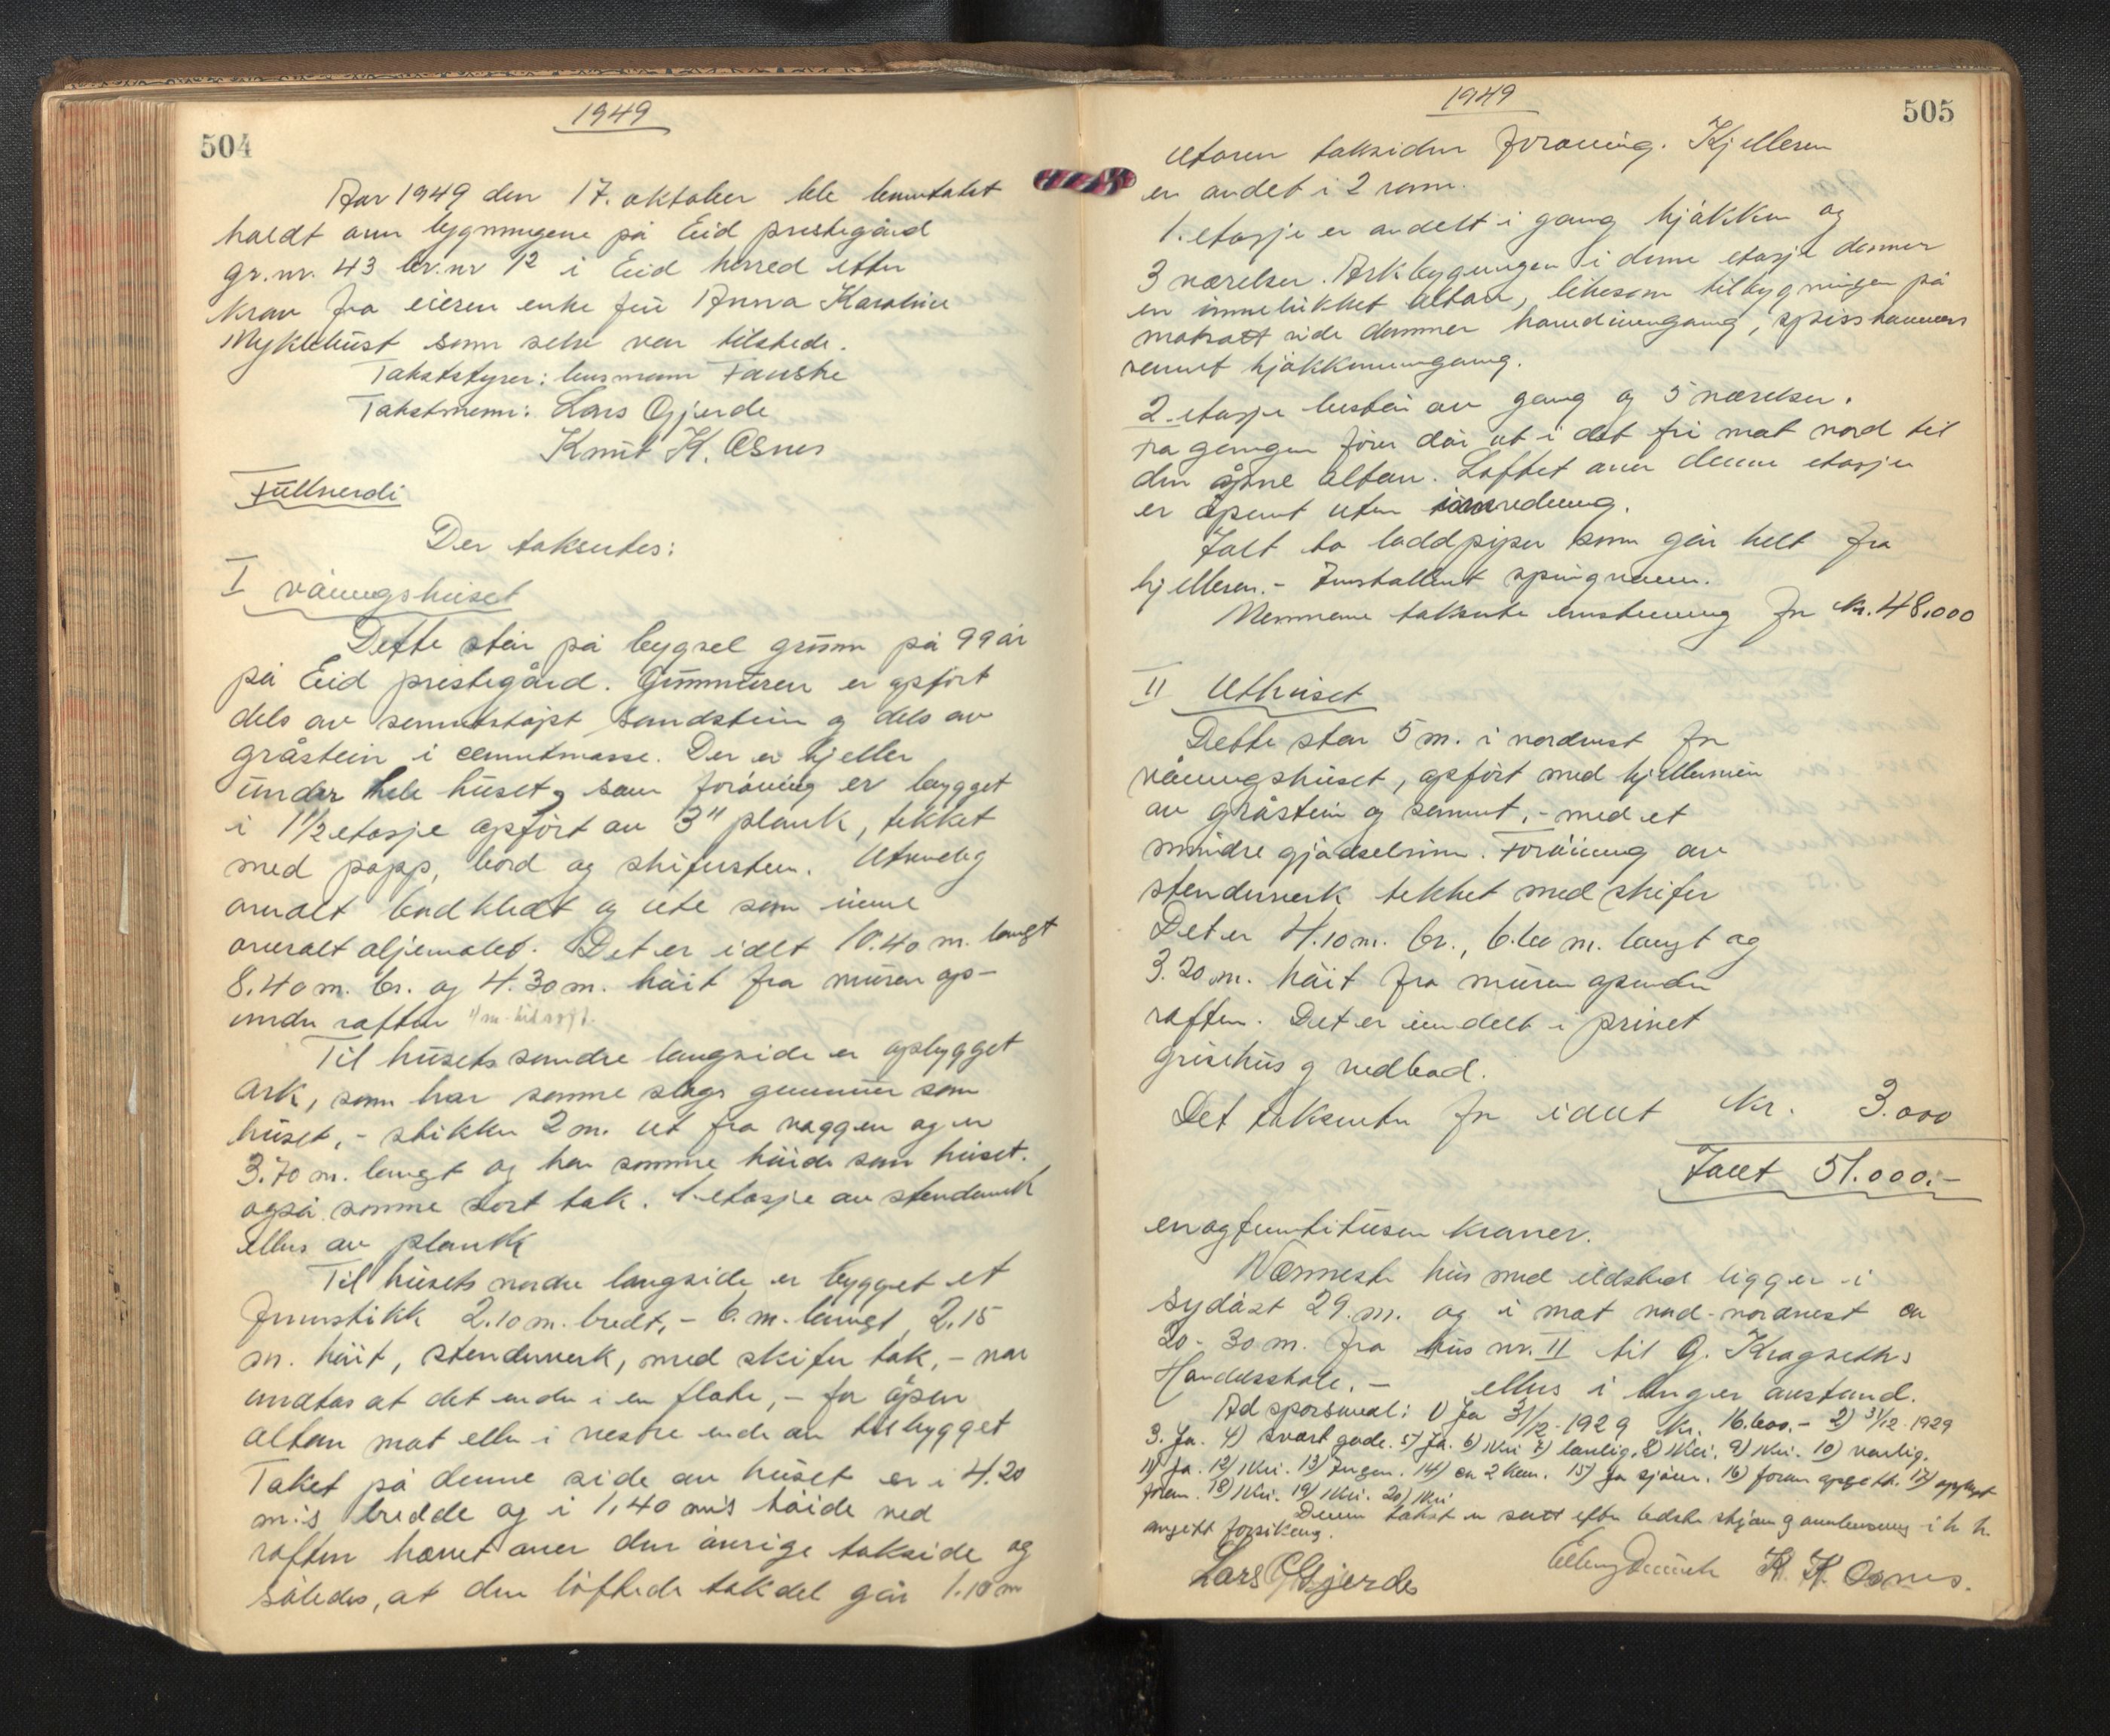 1949
504
Aar 1949 den 17. oktober ble branntakst
holdt over bygningene på Eid prestegård
gr.nr. 43 br.nr 12 i Eid herred etter
krav fra eieren enke fru Anna Karoline
Myklebust som selv var tilstede.
Takststyrer: lensmann Fauske
Takstmenn: Lars Gjerde
Knut K. Osnes
Fullverdi
Der takseres:
I våningshuset
Dette står på bygsel grunn på 99 år
på Eid prestegård. Grunnmuren er opført
dels av sementstøpt sandstein og dels av
gråstein i cementmasse. Der er kjeller
under hele huset, som forøvrig er bygget
i 1½ etasje opført av 3" plank, tekket
med papp, bord og skifersten. Utvendig
overalt bordkledt og ute som inne
overalt oljemalet. Det er idet 10.40 m. langt
8.40 m. br. og 4.30 m. høit fra muren op-
under raften
Til husets søndre langside er opbygget
ark, som har samme slags grunnmur som
huset, - stikker 2 m. ut fra veggen og er
3.70 m. langt og har samme høide som huset.
også samme sort tak. 1. etasje av stenderverk
ellers av plank
Til husets nordre langside er bygget et
fremstikk 2.10 m. bredt, - 6. m. langt 2.15
m. høit, stenderverk, med skifer tak, - når
undtas at det ender i en flate, - for åpen
altan mot eller i vestre ende av tilbygget
Taket på denne side av huset er i 4.20
m:s bredde og i 1,40 m's høide ved
raften hevet over den øvrige takside og
således, at den løftede takdel går 1.10 m
1949
505
utover taksiden forøvrig. Kjelleren
er andet i 2 rom.
1. etasje er andelt i gang kjøkken og
3 værelser. Arkbygningen i denne etasje danner
en innelukket altan, likesom tilbygningen på
motsatt side danner hovedinngang, spisskammers
samt kjøkkeninngang.
2. etasje består av gang og 5 værelser.
fra gangen fører dør ut i det fri mot nord til
den åpne altan. Loftet over denne etasje
er åpent uten innredning.
Ialt to loddpiper som går helt fra
kjelleren. - Installert springvann.
Mennene takserte enstemmig for kr. 48.000
II Uthuset
Dette står 5 m. i nordvest for
våningshuset, opført med kjellermur
av gråstein og sement, - med et
mindre gjødselrum. Forøvrig av
stenderverk tekket med skifer
Det er 4.10 m. br., 6.60 m. langt og
3.20 m. høit fra muren opunder
raften. Det er inndelt i privet
grisehus og vedbod.
Det takseres for idet kr. 3.000
Ialt 51.000.-
enogfemtitusen kroner.
Nærmeste hus med ildsted ligger i
sydøst 29. m. og i mot nord-nordvest ca
20-30 m. fra hus nr. II til O. Kragseths
Handelsskole. - ellers i lenger avstand.
Ad spørsmål: 1) Ja 31/12-1929 kr. 16.600.- 2) 31/12-1929
3. Ja. 4) svært gode. 5) Ja. 6) Nei 7) lovlig. 8) Nei. 9) Nei. 10) vanlig.
11) Ja. 12) Nei. 13) Ingen. 14) ca 2 km. 15) Ja sjøen. 16) foran opgitt. 17) opplyst
foran. 18) Nei. 19) Nei. 20) Nei
Denne takst er satt efter bedste skjønn og i h. h.
angitt forsikring.
Lars G Gjerde K. K. Osnes.